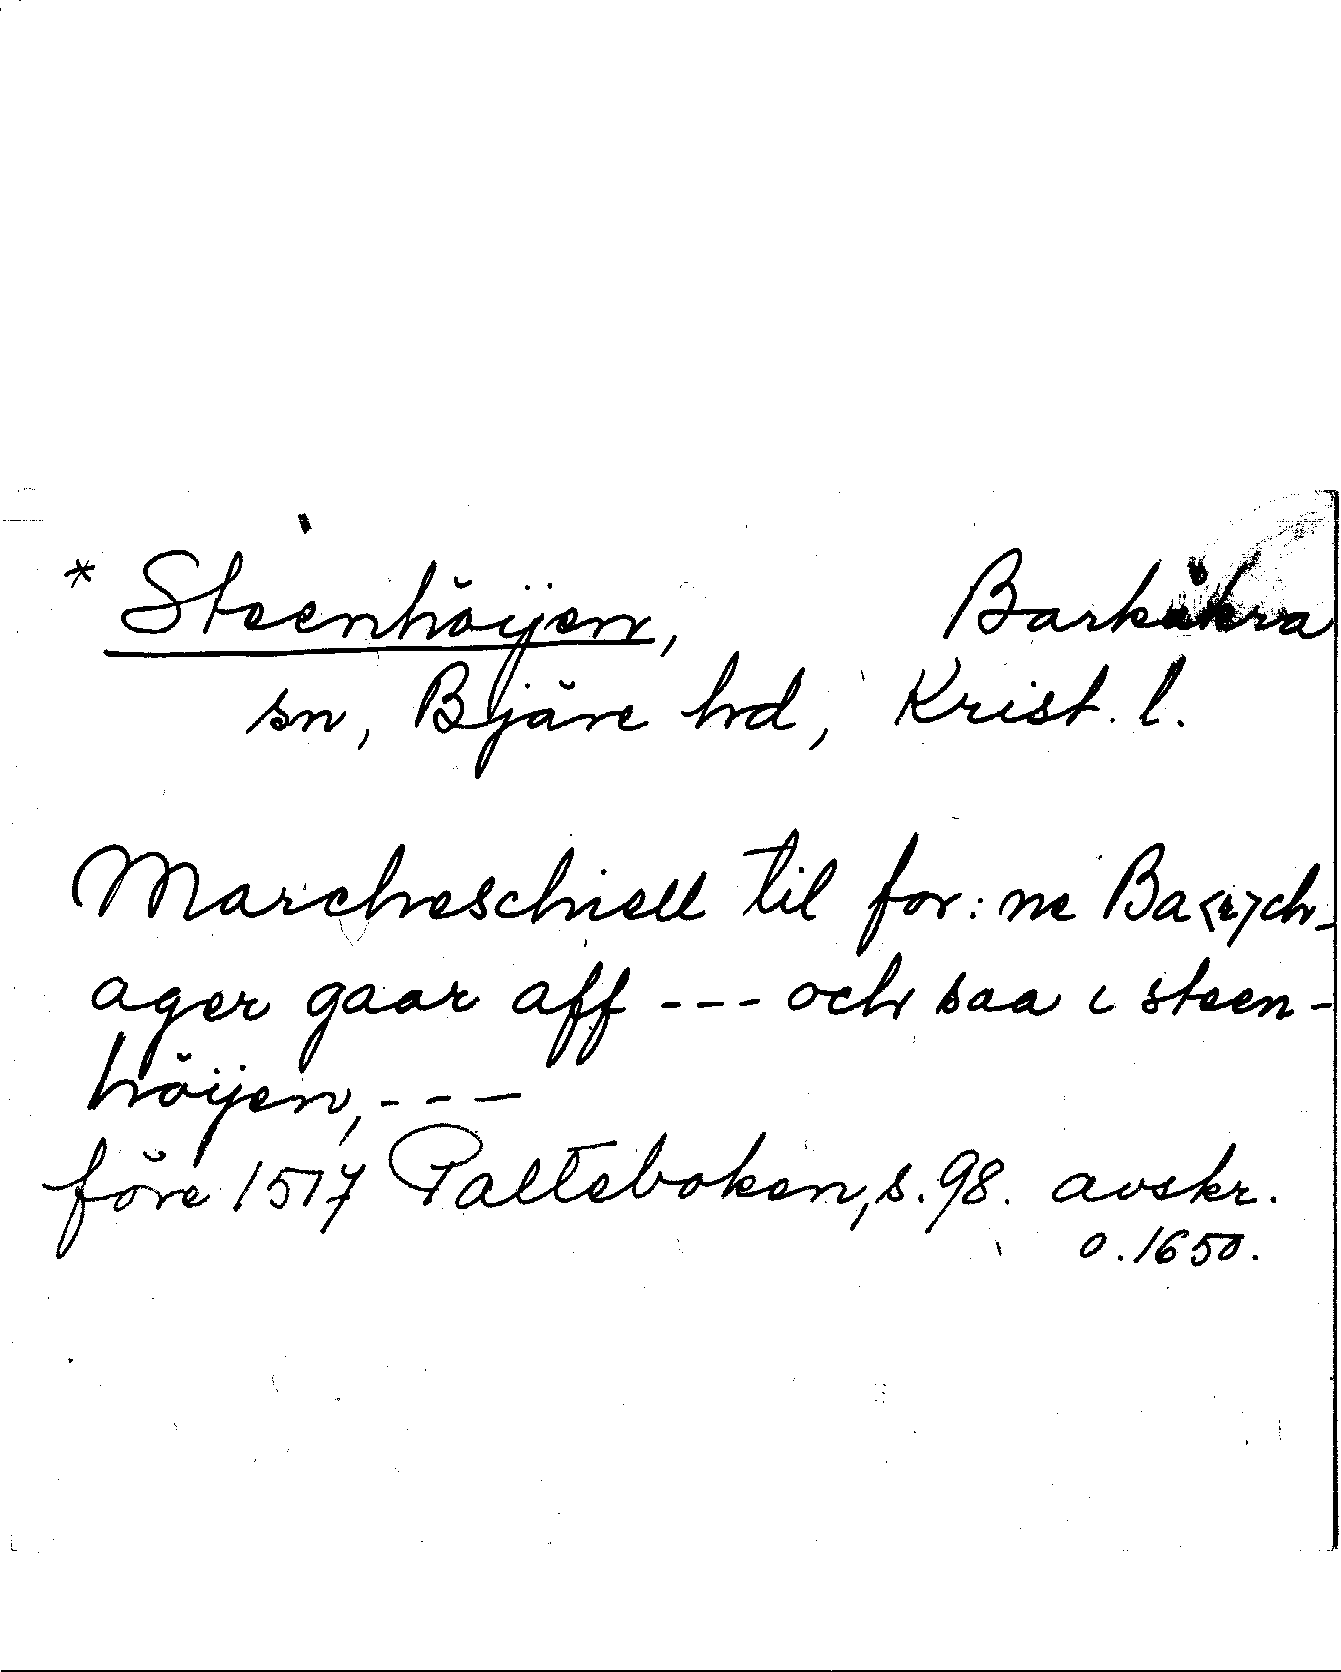 * Steenhöijen, Barkåkra
sn, Bjäre hd, Krist. l.
Marcheschiell til for: ne Ba<r>ch-
ager gaar aff --- och saa i steen-
höijen, ---
före 1517 Palteboken, s. 98. avskr.
o. 1650.